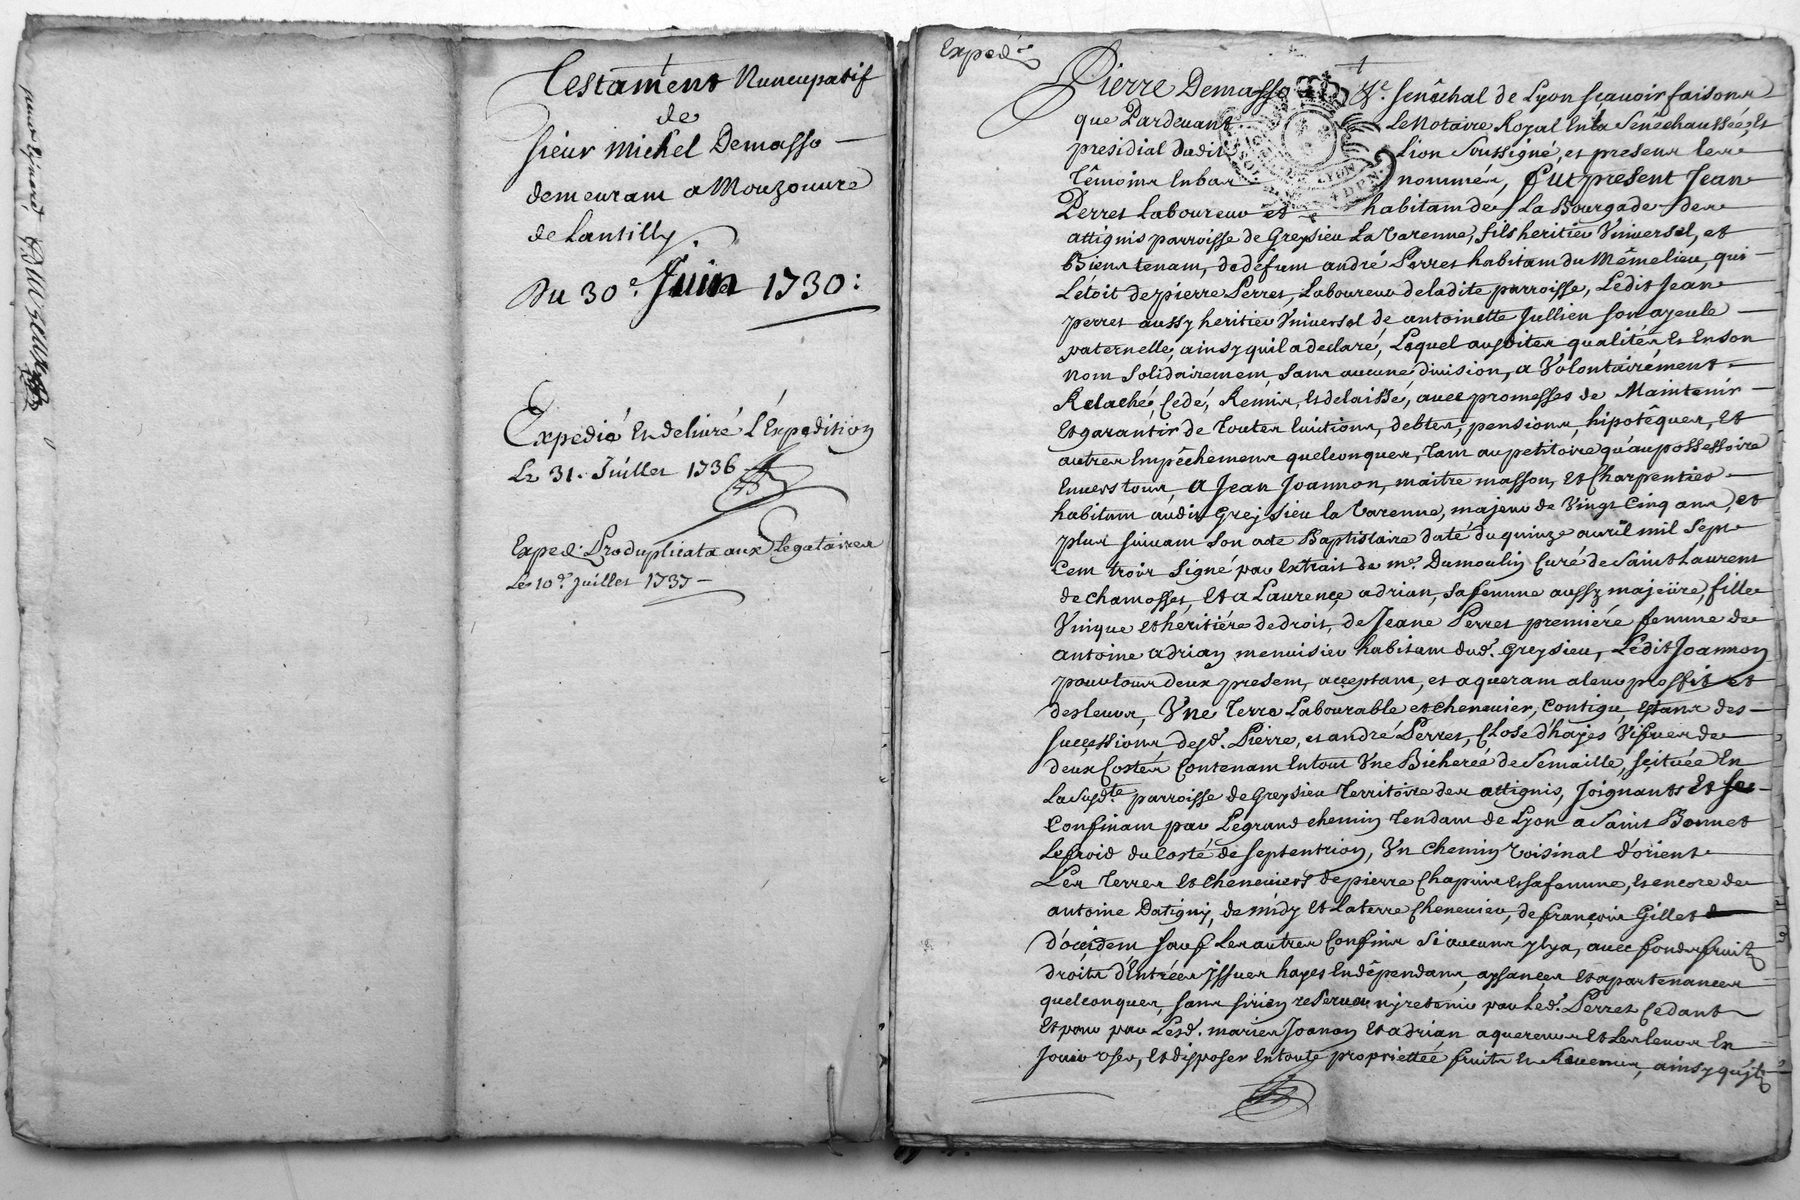 Testament Nuncupatif
de
sieur Michel Demasso
demeurant a Mouzouure
de Lantilly.
Du 30e. Juin 1730:
Expedié et deliuré l'Expedition
Le 31. Juillet 1736
Exped. pro duplicata aux Legataires
Le 10e. Juillet 1737
Exped.
Pierre Demasso Sénéchal de Lyon sçauoir faisons
que Pardeuant Le Notaire Royal En la Sénéchaussée, et
presidial dudit Lion Soussigné, et presens les
témoins En bas nommés, fut present Jean
Perret Laboureur et habitant de La Bourgade des
attignis parroisse de Greysieu La Varenne, fils heritier Vniversel, et
Biens tenant, de défunt andré Perret habitant du Même lieu, qui
L'étoit de pierre Perret, Laboureur de ladite parroisse, Ledit Jean
perret aussy heritier Vniversel de antoinette Jullien son ayeule
paternelle, ainsy quil a declaré, Lequel ausdites qualités et En son
nom Solidairement, sans aucune diuision, a Volontairement
Relaché, Cedé, Remis, et delaissé, auec promesses de Maintenir
Et garantir de toutes Euictions, debtes, pensions, hipotêques, et
autres Empêchemens quelconques, tant au petitoire qu'au possessoire
Enuers tous, a Jean Joannon, maitre masson, et Charpentier
habitant audit Greysieu la Varenne, majeur de Vingt Cinq ans, et
plus suiuant son acte Baptistaire daté du quinze auril mil Sept
Cent trois Signé par Extrait de me. Dumoulin Curé de Saint Laurent
de chamosset, et a Laurence adrian, sa femme aussy majeure, fille
Vnique et héritiére de droit, de Jeane Perret premiére femme de
antoine adrian menuisier habitant dud. Greysieu, Ledit Joannon
pour tous deux present, acceptant, et aquerant a leur proffit et
des leurs, Vne Terre Labourable et cheneuier, Contigu, Estans des
successions desd. Pierre, et andré Perret, Close d'hayes Vifues de
deux Costés Contenant En tout Vne Bicherée de Semaille, scituée En
La susdte. parroisse de Greysieu Territoire des attignis, Joignants Et se
Confinant par Le grand chemin Tendant de Lyon a Saint Bonnet
Le froid du Costé de septentrion, Vn chemin voisinal d'orient
Les terres et cheneuiers de pierre Chapuis et sa femme, et encore de
antoine Datigny, de midy Et La terre cheneuier, de françois Gillet
d'occident sauf Les autres Confins si aucuns y'a, auec fonds fruits
droits d'Entrées Issues hayes En dépendans, aysances et apartenances
quelconques, sans si rien reseruer ny retenir par Led. Perret Cedant
Et pour par Lesd. mariés Joanon et adrian aquereurs Et Les leurs En
Jouir vser, et disposer En toute proprietteé fruits et Reuenus, ainsy qu'il